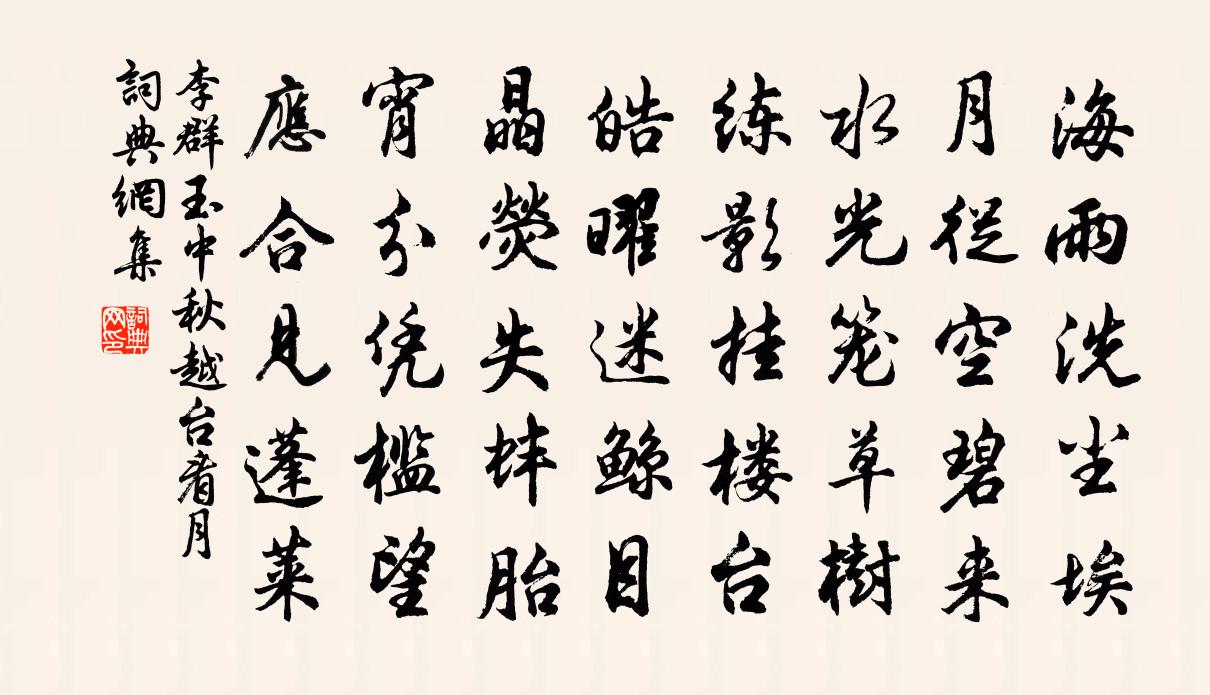 海雨洗尘埃
月从空碧来
水光笼草樹
练影挂楼台
皓曜迷鲸目
晶熒失蚌胎
宵分凭槛望
應合見蓬莱
李群玉中秋越台看月
詞典網集
詞典网印